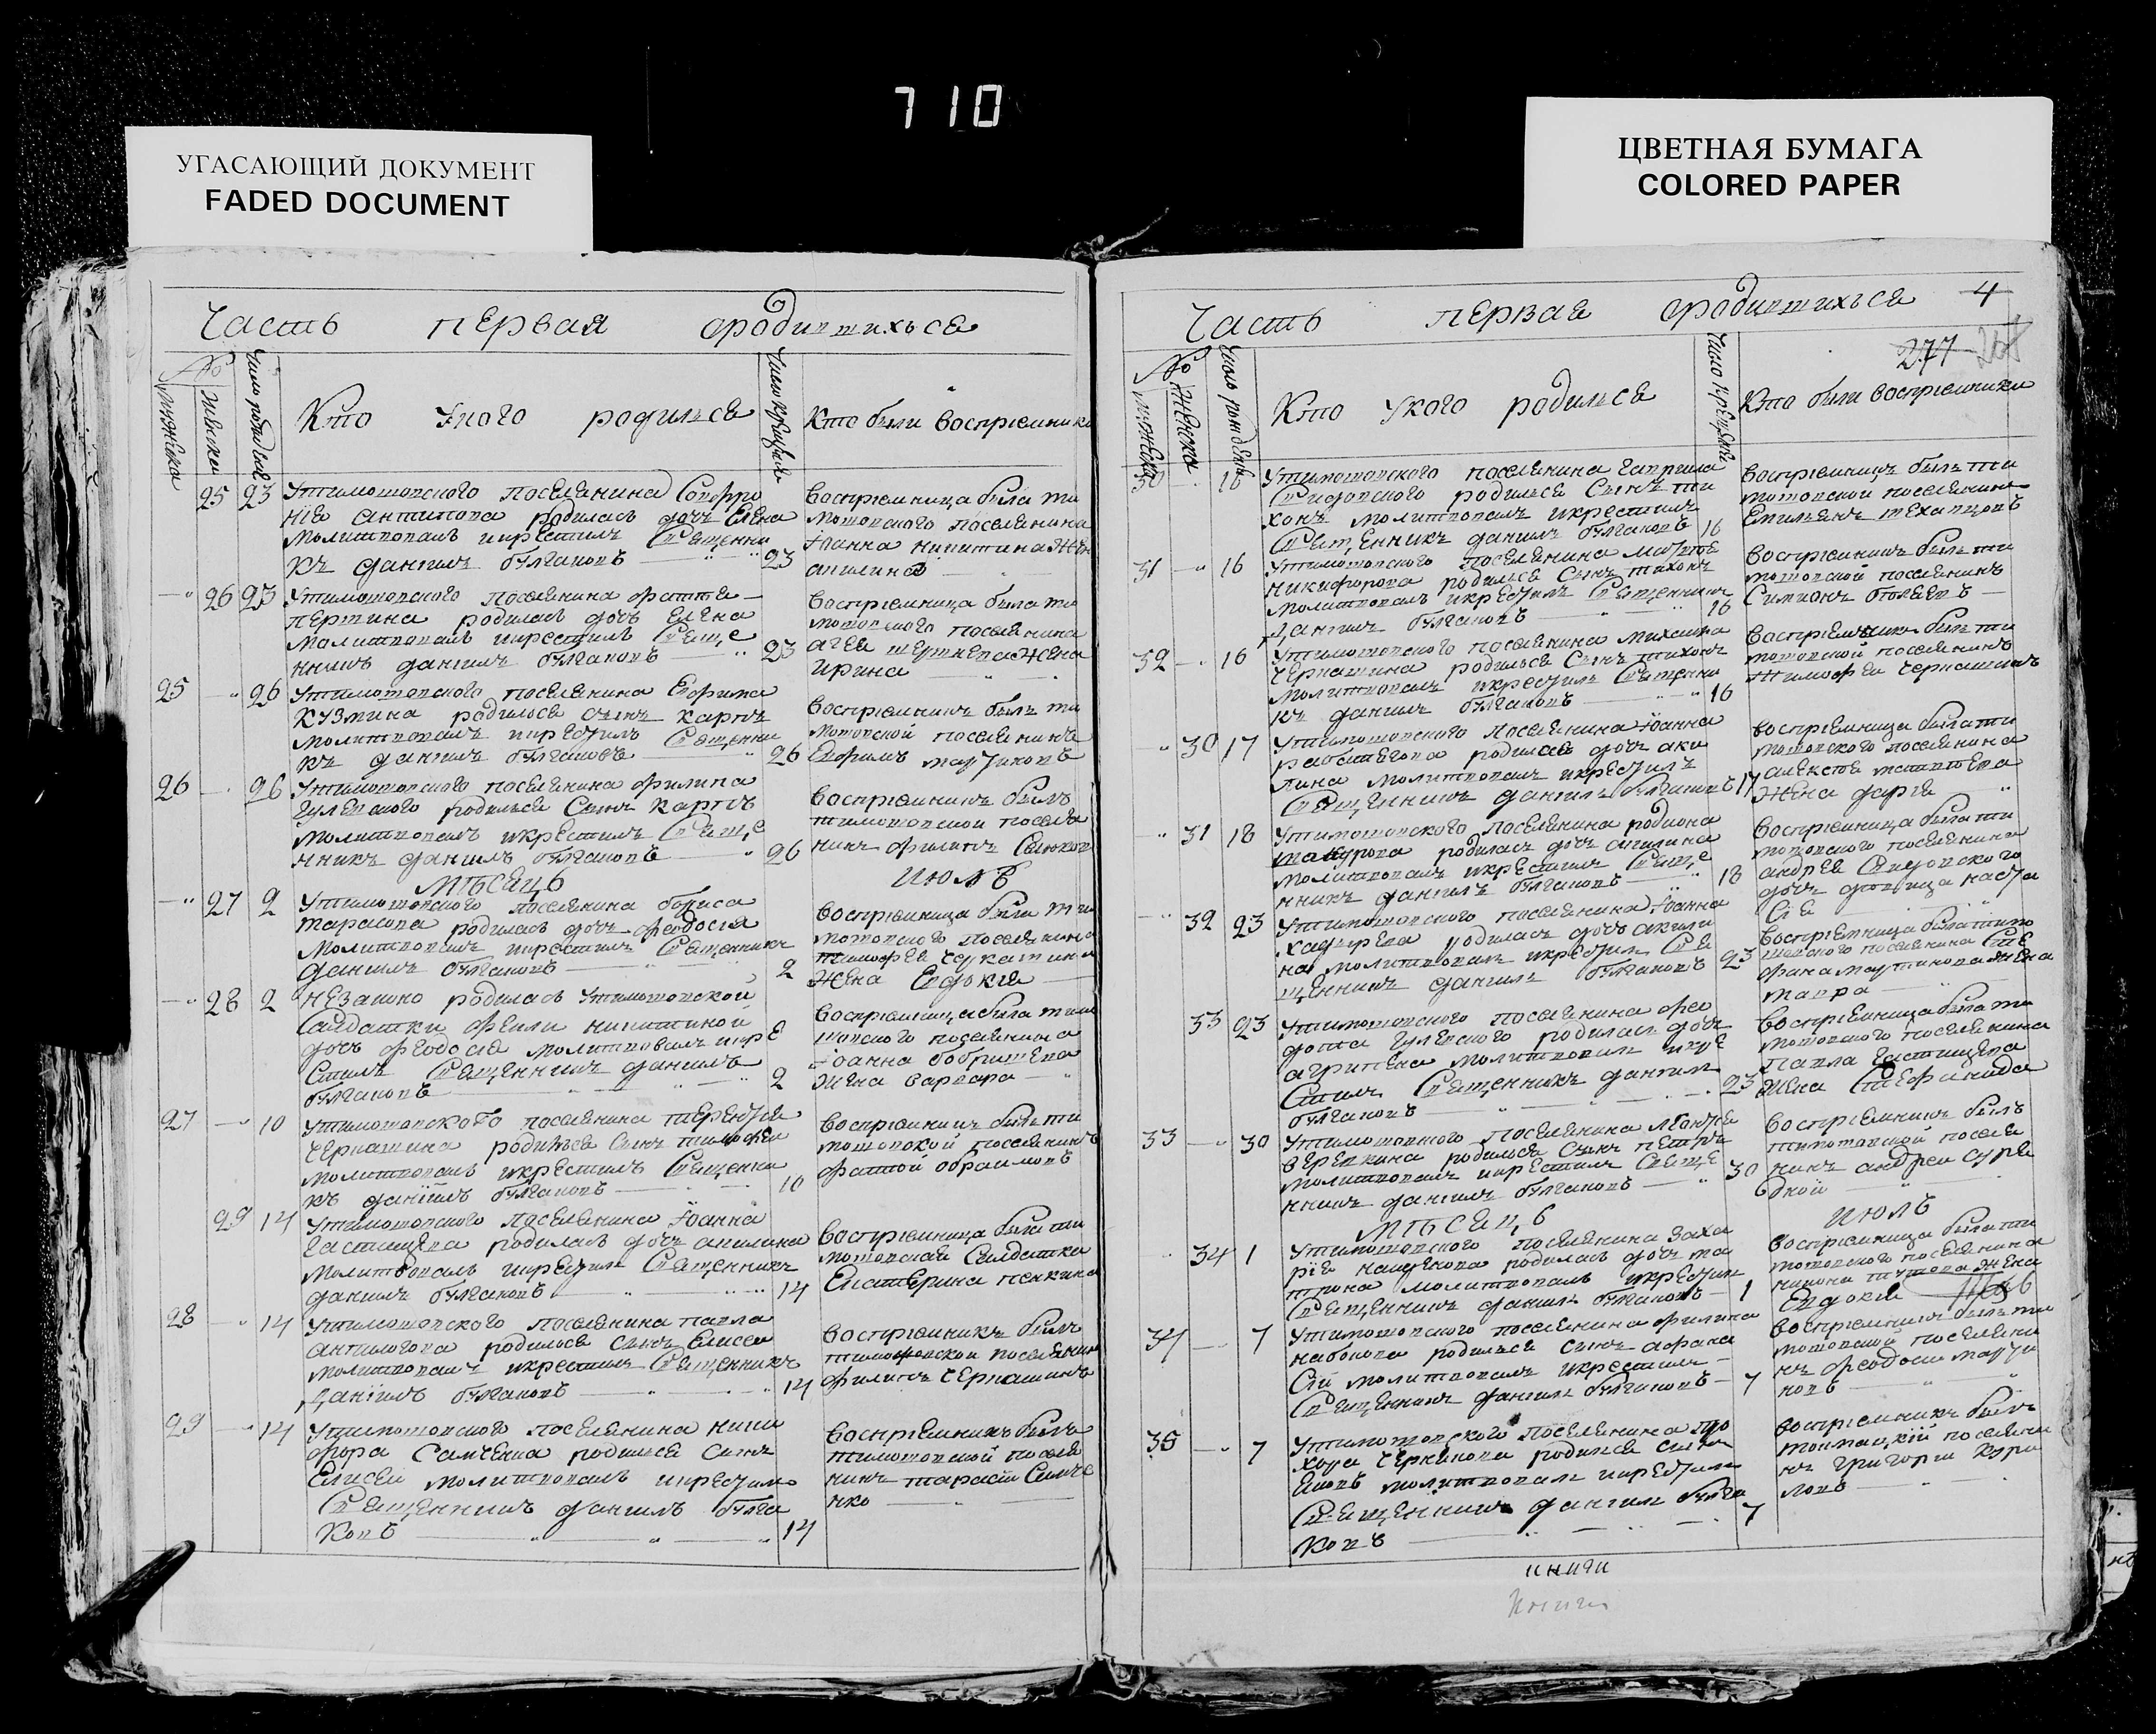 710
УГАСАЮЩИЙ ДОКУМЕНТ
FADED DOCUMENT
ЦВЕТНАЯ БУМАГА
COLORED PAPER
Часть первая ородившихъся
№
мужска
женска
Число рождения
Кто укого родилься
Число крещения
Кто были восприемники
25 23 Утимошовского поселянина Софро
ния антипова родилась дочь Елена
молитвовалъ икрестилъ Священни
къ даниилъ булгаковъ 23
восприемница была ти
мошовского поселянина
Иоанна никитина жен
26 23 Утимошовского поселянина
родилась дочь Елена
молитвовалъ икрестилъ Свяще
нникъ даниилъ булгаковъ 23
восприемница была ти
мошовского поселянина
жена
ирина
25 26 Утимошовского поселянина Ефима
кузмина родилься сынъ карпъ
молитвовалъ икрестилъ Священни
къ даниилъ булгаковъ 26
восприемникъ былъ ти
мошовской поселянинъ
Ефимъ мартиновъ
26 26 Утимошовского поселянина филипа
гулевского родилься Сынъ Карпъ
молитвовалъ икрестилъ Свяще
нникъ даниилъ булгаковъ 26
восприемникъ былъ
тимошовской поселя
нинъ филипъ
Мѣсяцъ июль
27 2 Утимошовского поселянина бориса
тарасова родилась дочь феодосия
молитвовалъ икрестилъ Священникъ
даниилъ булгаковъ 2
восприемница была ти
мошовского поселянина
тимофея
жена Евдокия
28 2 незаконо родилась утимошовской
Салдатки никитиной
дочь феодосия молитвовалъ икре
стилъ Священникъ даниилъ
булгаковъ 2
восприемница была тимо
шовского поселянина
Иоанна бобришева
жена варвара
27 10 Утимошовского поселянина терентия
чернашина родилься сынъ тимофей
молитвовалъ икрестилъ Священни
къ данiилъ булгаковъ 10
восприемникъ былъ ти
мошовской поселянинъ
29 14 Утимошовского поселянина Иоанна
родилась дочь акилина
молитвовалъ икрестилъ Священникъ
даниилъ булгаковъ 14
восприемница была ти
мошовская Салдатка
Екатерина пенкина
28 14 Утимошовского поселянина павла
родилься сынъ Елисей
молитвовалъ икрестилъ Священникъ
Данiилъ булгаковъ 14
восприемникъ былъ
тимошовской поселянин
филипъ чернашинъ
29 14 Утимошовского поселянина ники
фора Самченка родилься Сынъ
Елисей молитвовалъ икрестилъ
Священникъ даниилъ булга
ковъ 14
восприемникъ былъ
тимошовской поселя
нинъ тарасiй Самче
нко
Часть первая ородившихъся 4
277
№
мужска
Женска
Число рождения
Кто укого родилься
Число крещения
Кто были восприемники
30 16 Утимошовского поселянина гаврила
Свидовского родилься Сынъ ти
хонъ молитвовалъ икрестилъ
Священникъ даниилъ булгаковъ 16
восприемникъ былъ ти
мошовской поселянинъ
Емильянъ
31 16 Утимошовского поселянина матвѣя
никифорова родилься Сынъ тихонъ
молитвовалъ икрестилъ Священникъ
Даниилъ булгаковъ 16
восприемникъ былъ ти
мошовской поселянинъ
Симионъ
32 16 Утимошовского поселянина михаила
чернашина родилься Сынъ тихонъ
молитвовалъ икрестилъ Священни
къ даниилъ булгаковъ 16
восприемникъ былъ ти
мошовской поселянинъ
тимофей чернашинъ
30 17 Утимошовского поселянина Иоанна
родилась дочь аки
лина молитвовалъ икрестилъ
Священникъ даниилъ булгаковъ 17
восприемница была ти
мошовского поселянина
алексѣя матвѣева
жена дария
31 18 Утимошовского поселянина родиона
родилась дочь акилина
молитвовалъ икрестилъ Свяще
нникъ даниилъ булгаковъ 18
восприемница была ти
мошовского поселянина
андрея Свидовского
дочь девица наста
сiя
32 23 Утимошовского поселянина Иоанна
родилась дочь акили
на молитвовалъ икрестилъ Свя
щенникъ даниилъ булгаковъ 23
восприемница была тимо
шовского поселянина Сте
фана мартинова жена
мавра
33 23 Утимошовского поселянина фео
дота гулевского родилась дочь
агрипена молитвовалъ икре
стилъ Священникъ даниилъ
булгаковъ 23
восприемница была ти
мошовского поселянина
павла
жена Стефанида
33 30 Утимошовского поселянина леонтия
веревкина родилься Сынъ петръ
молитвовалъ икрестилъ Свяще
нникъ даниилъ булгаковъ 30
восприемникъ былъ
тимошовской поселя
нинъ андрей
Мѣсяцъ июль
34 1 Утимошовского поселянина заха
рiя родилась дочь ма
трона молитвовалъ икрестилъ
Священникъ даниилъ булгаковъ 1
восприемница была ти
мошовского поселянина
жена
Евдокия
34 7 Утимошовского поселянина филипа
набокова родилься сынъ афана
сiй молитвовалъ икрестилъ
Священникъ даниилъ булгаковъ 7
восприемникъ былъ ти
мошовской поселяни
нъ феодосий марти
новъ
35 7 Утимошовского поселянина про
хора родилься сынъ
молитвовалъ икрестилъ
Священникъ даниилъ булга
ковъ 7
восприемникъ былъ
поселяни
нъ григорий
ловъ
книги
книги